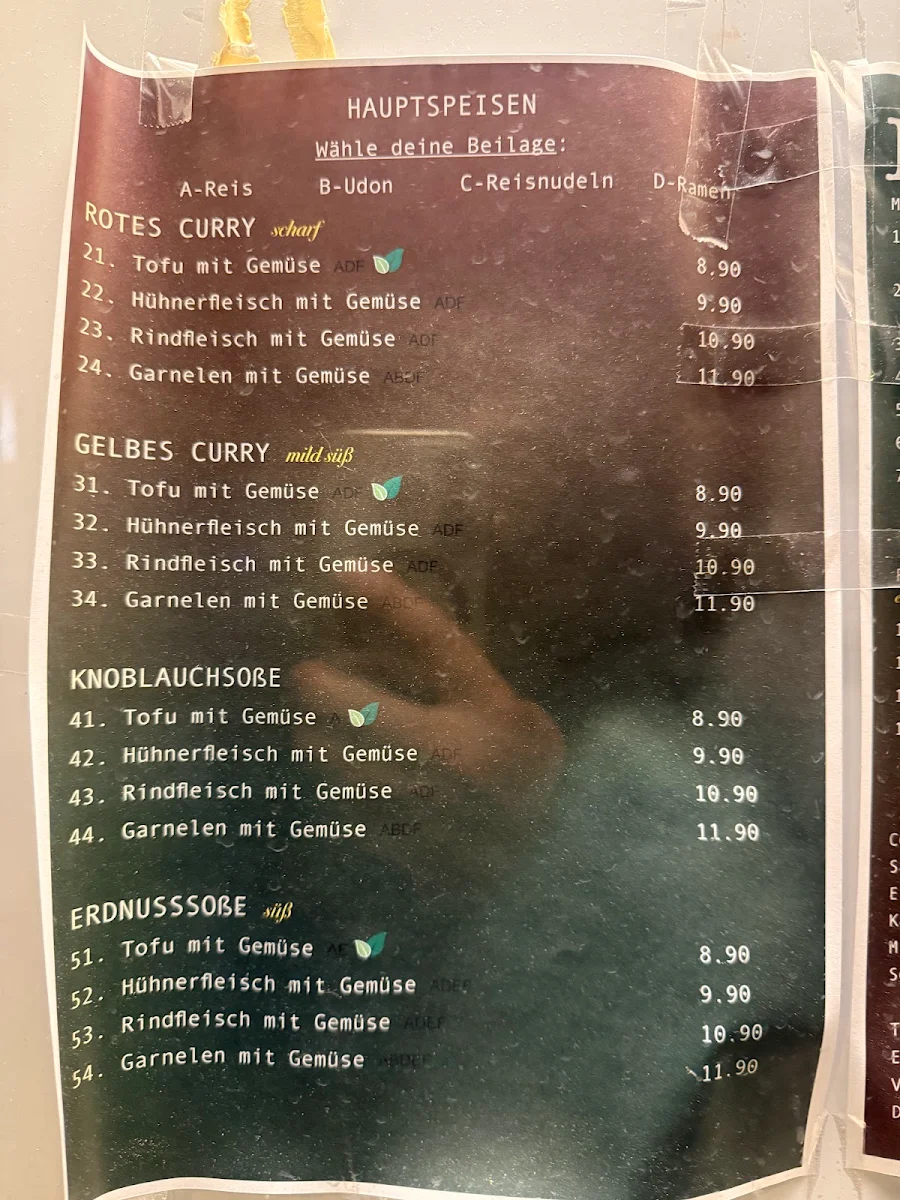 HAUPTSPEISEN
Wähle deine Beilage:
A-Reis B-Udon C-Reisnudeln D-Ramen
ROTES CURRY scharf
21. Tofu mit Gemüse ADF 8.90
22. Hühnerfleisch mit Gemüse ADF 9.90
23. Rindfleisch mit Gemüse ADF 10.90
24. Garnelen mit Gemüse ABDF 11.90
GELBES CURRY mild süß
31. Tofu mit Gemüse ADF 8.90
32. Hühnerfleisch mit Gemüse ADF 9.90
33. Rindfleisch mit Gemüse ADF 10.90
34. Garnelen mit Gemüse ABDF 11.90
KNOBLAUCHSOßE
41. Tofu mit Gemüse 8.90
42. Hühnerfleisch mit Gemüse ADF 9.90
43. Rindfleisch mit Gemüse ADF 10.90
44. Garnelen mit Gemüse ABDF 11.90
ERDNUSSSOßE süß
51. Tofu mit Gemüse AE 8.90
52. Hühnerfleisch mit Gemüse ADEF 9.90
53. Rindfleisch mit Gemüse ADEF 10.90
54. Garnelen mit Gemüse ABDEF 11.90